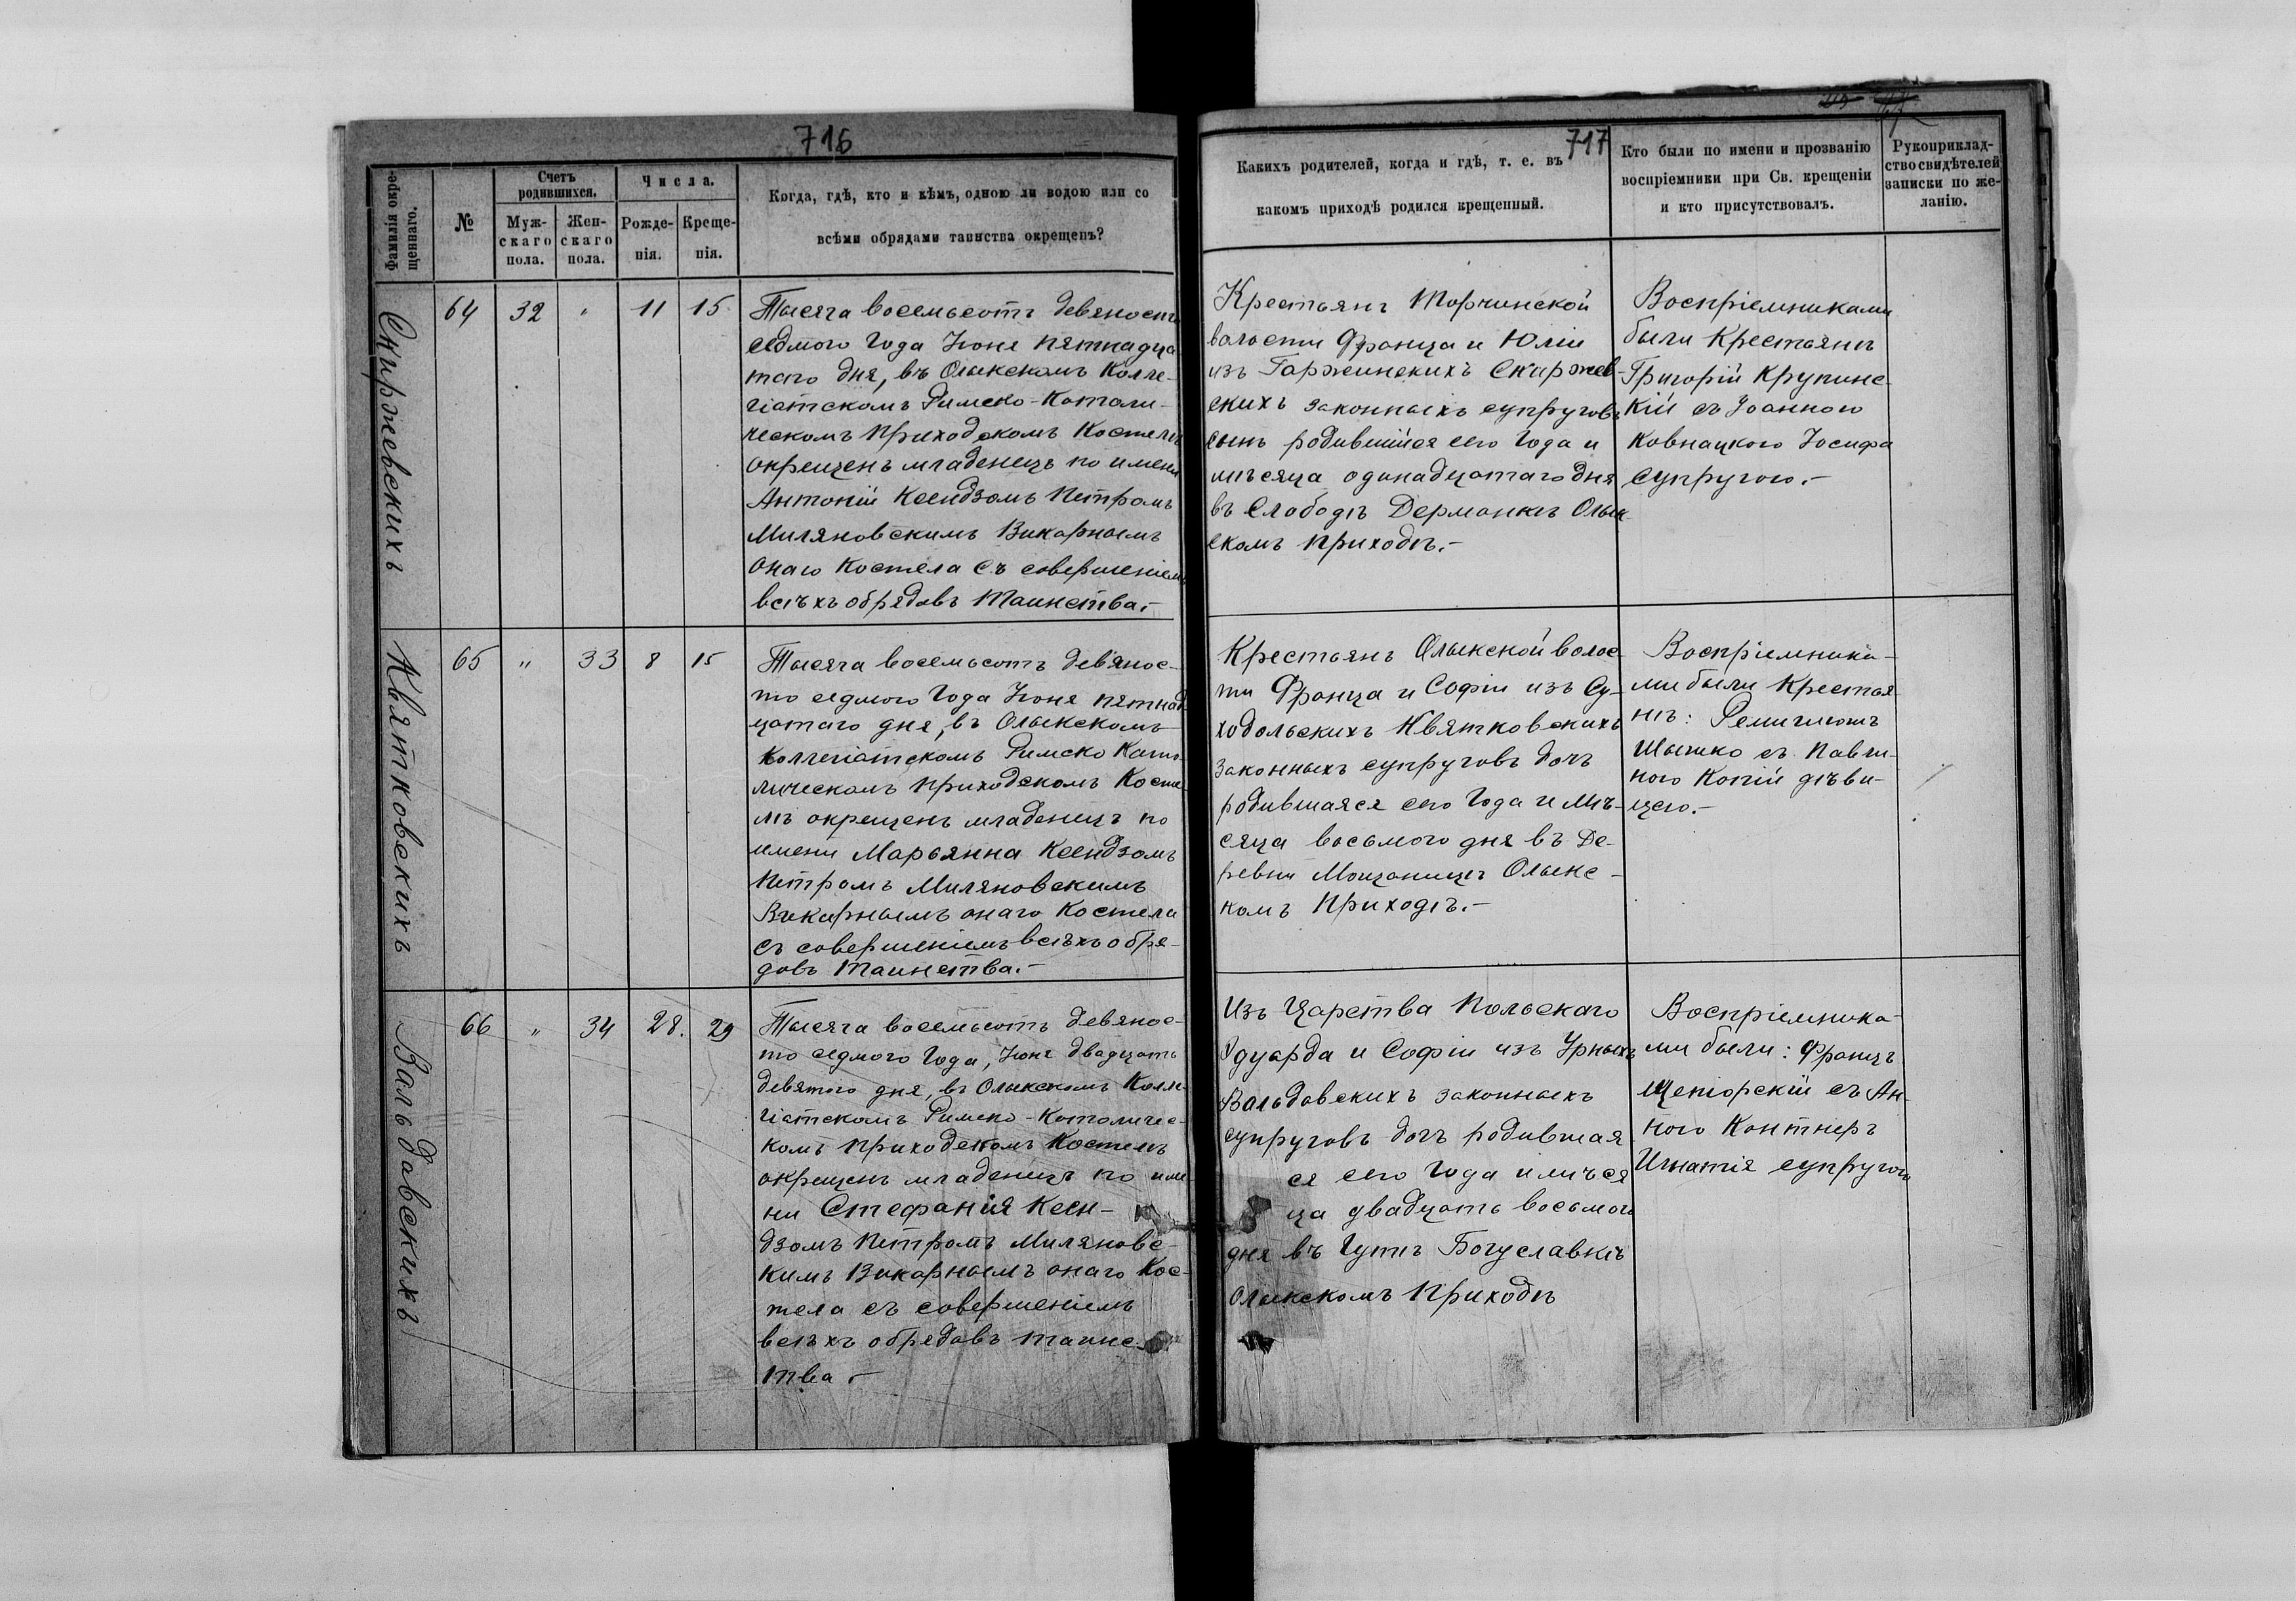 716
Фамилія окре-
щеннаго.
№
Счетъ
родившихся.
Муж-
скаго
пола.
Жен-
скаго
пола.
Числа.
Рожде-
нія.
Креще-
нія.
Когда, гдѣ, кто и кѣмъ, одною ли водою или со
всѣми обрядами таинства окрещенъ?
Скиржевскихъ
64
32
"
11
15
Тысяча восемьсотъ девяносто
седмого Года Іюня пятнадца
таго дня, въ Олыкскомъ Колле-
гіатскомъ Римско-Католи-
ческомъ приходскомъ Костелѣ
окрещенъ младенецъ по имени
Антоній Ксендзомъ Петромъ
Миляновскимъ Викарнымъ
Онаго Костела Съ совершеніемъ
всѣхъ обрядовъ Таинства.-
Квятковскихъ
65
"
33
8
15
Тысяча восемьсотъ девянос-
то седмого Года Іюня пятнад
цатаго дня, въ Олыкскомъ
Коллегіатскомъ Римско Като-
лическомъ приходскомъ Косте-
лѣ окрещенъ младенецъ по
имени Марьянна Ксендзомъ
Петромъ Миляновскимъ
Викарнымъ онаго Костела
съ совершеніемъ всѣхъ обря-
довъ Таинства.-
Вальдавскихъ
66
"
34
28.
29
Тысяча восемьсотъ девянос-
то седмого Года, Іюня двадцать
девятого дня, въ Олыкскомъ Колле-
гіатскомъ Римско-Католичес-
комъ приходскомъ Костелѣ
окрещенъ младенецъ по име
ни Стефанія Ксен-
дзомъ Петромъ Миляновс-
кимъ Викарнымъ онаго Кос-
тела съ совершеніемъ
всѣхъ обрядовъ таинс
тва.-
717
Какихъ родителей, когда и гдѣ, т. е. въ
какомъ приходѣ родился крещенный.
Кто были по имени и прозванію
воспріемники при Св. крещеніи
и кто присутствовалъ.
Рукоприклад-
ство свидѣтелей
записки по же-
ланію.
Крестьянъ Торчинской
волости Франца и Юліи
изъ Гаржинскихъ Скиржев-
скихъ законныхъ супруговъ
сынъ родившійся сего Года и
мѣсяца одинадцатаго дня
въ Слободѣ Дерманкѣ Олык-
скомъ приходѣ.-
Воспріемниками
были Крестьяне
Григорій Крупинс-
кій съ Іоанною
Ковнацкого Іосифа
супругою.-
Крестьянъ Олыкской волос-
ти Франца и Софіи изъ Су-
ходольскихъ Квятковскихъ
законныхъ супруговъ дочь
родившаяся сего Года и Мѣ-
сяца восьмого дня въ Де-
ревни Мощаницѣ Олыкс-
комъ Приходѣ.-
Воспріемника-
ми были Крестья
нѣ: Ремигіюшъ
Шышко съ Павли-
ною Копій дѣви-
цею.-
Изъ Царства Польскаго
Эдуарда и Софіи изъ Урныхъ
Вальдавскихъ законныхъ
супруговъ дочь родившая
ся сего Года и мѣся
ца двадцать восьмого
дня въ Гутѣ Богуславкѣ
Олыкскомъ Приходѣ
Воспріемника-
ми были: Францъ
Цепюрскій съ Ан-
ною Контнеръ
Игнатія супругою